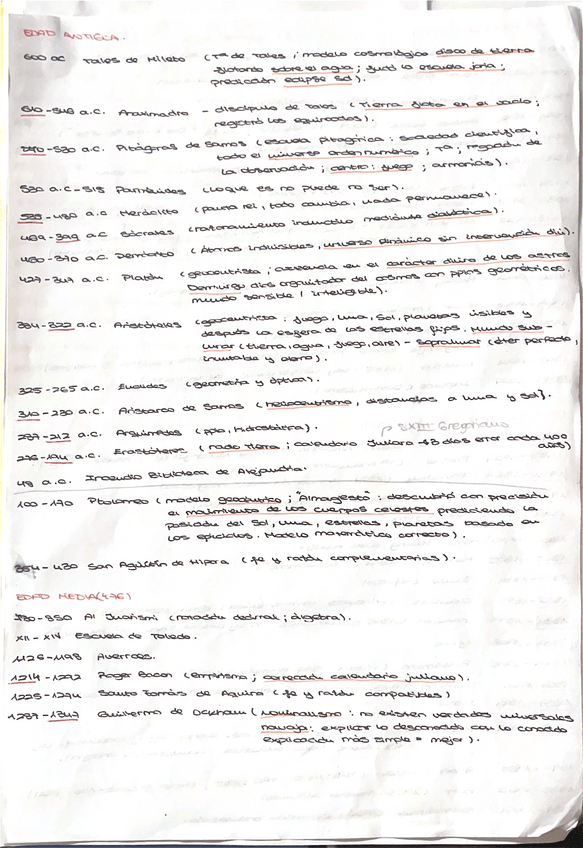 EDAD ANTIGUA.
600 ac Tales de Mileto (Tª de Tales, modelo cosmológico disco de tierra
flotando sobre el agua; fundó la escuela jonia;
predicción eclipse Sol).
610-546 a.c. Anaximandro - discípulo de Tales (Tierra flota en el vacío;
registró los equinoccios).
570-530 a.c. Pitágoras de Samos (escuela pitagórica: sociedad científica,
todo el universo orden numérico; Tª; negación de
la observación; centro: fuego; armonías).
530 a.c-515 Parménides (lo que es no puede no ser).
535-480 a.c Heráclito (panta rei, todo cambia, nada permanece).
469-399 a.c Sócrates (razonamiento inductivo mediante dialéctica).
460-370 a.c Demócrito (Átomos indivisibles, universo dinámico sin intervención div.).
427-347 a.c. Platón (geocentrista; creencia en el carácter divino de los astros
Demiurgo dios organizador del cosmos con ppios geométricos.
mundo sensible / inteligible).
384-322 a.c. Aristóteles (geocentrista: fuego, luna, Sol, planetas visibles y
después la esfera de las estrellas fijas. Mundo sub-
lunar (tierra, agua, fuego, aire) - supralunar (éter perfecto,
inmutable y eterno).
325-265 a.c. Euclides (geometría y óptica).
310-230 a.c. Aristarco de Samos (heliocentrismo, distancias a luna y sol).
287-212 a.c. Arquímedes (ppio, hidrostática).
SXIII Gregoriano
276-194 a.c. Eratóstenes (radio tierra; calendario Juliano → 3 días error cada 400
años)
48 a.c. Incendio Biblioteca de Alejandría.
100-170 Ptolomeo (modelo geocéntrico; "Almagesto": descubrió con precisión
el movimiento de los cuerpos celestes prediciendo la
posición del Sol, luna, estrellas, planetas basado en
los epiciclos. Modelo matemático correcto).
354-430 San Agustín de Hipona (fe y razón complementarias).
EDAD MEDIA (476)
780-850 Al Juarismi (notación decimal; álgebra).
XII - XIV Escuela de Toledo.
1126-1198 Averroes.
1214-1292 Roger Bacon (empirismo; corrección calendario juliano).
1225-1274 Santo Tomás de Aquino (fe y razón compatibles)
1287-1347 Guillermo de Ockham (nominalismo: no existen verdades universales
navaja: explicar lo desconocido con lo conocido
explicación más simple = mejor).